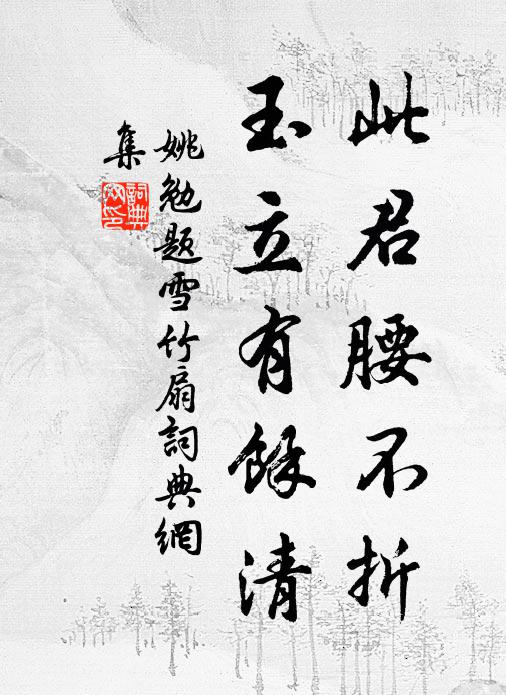 此君腰不折
玉立有餘清
姚勉題雪竹扇詞典網
集
詞典
网印